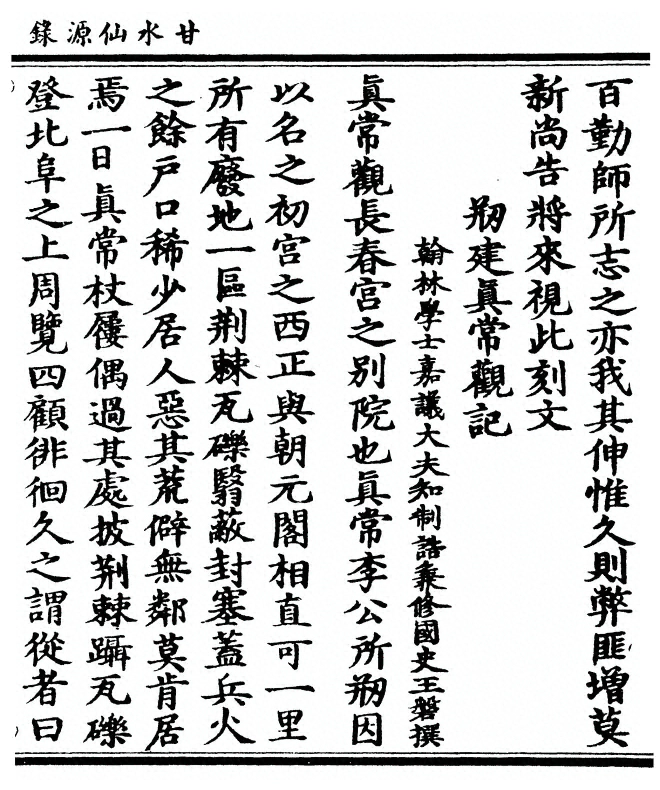 甘水仙源錄
百勤師所志之亦我其伸惟久則弊匪增莫
新尚告將來視此刻文
剏建眞常觀記
翰林學士嘉議大夫知制誥兼修國史王磐撰
眞常觀長春宮之別院也眞常李公所剏因
以名之初宮之西正與朝元閣相直可一里
所有廢地一區荆棘瓦礫翳蔽封塞蓋兵火
之餘戶口稀少居人惡其荒僻無鄰莫肯居
焉一日眞常杖屨偶過其處披荆棘躡瓦礫
登北阜之上周覽四顧徘徊久之謂從者曰